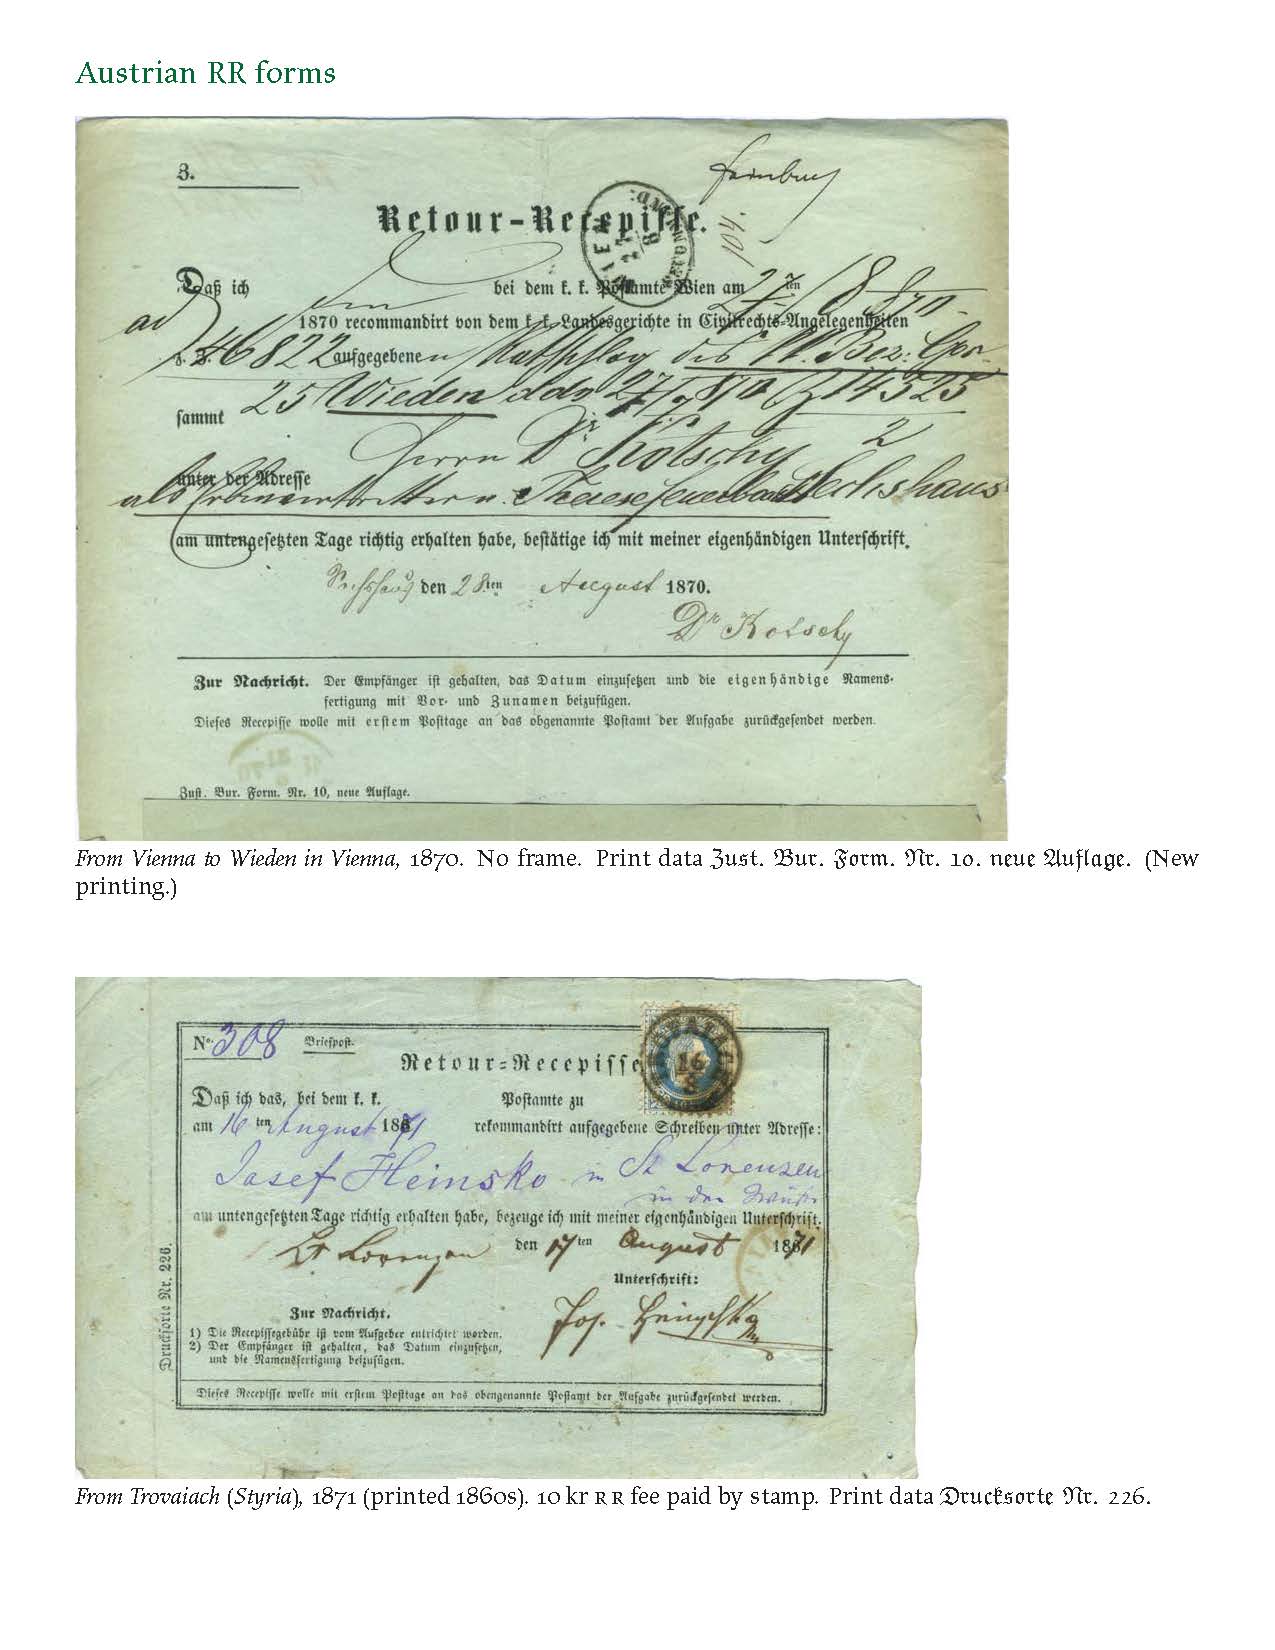 Austrian RR forms
3.
Retour-Recepisse.
104.
Daß ich bei dem k. k. Postamte Wien am 27 ten / 8 870
ad 1870 recommandirt von dem k. k. Landesgerichte in Civilrechts-Angelegenheiten
46822 aufgegebenen Rathschlag des
25 Wieden ddo 27/7 870 Z 14525
sammt
Herrn Dr Kotschy 2
unter der Adresse
als Therese Sechshaus
am untengesetzten Tage richtig erhalten habe, bestätige ich mit meiner eigenhändigen Unterschrift.
Sechshaus den 28ten August 1870.
Dr Kotschy
Zur Nachricht. Der Empfänger ist gehalten, das Datum einzusetzen und die eigenhändige Namens-
fertigung mit Vor- und Zunamen beizufügen.
Dieses Recepisse wolle mit erstem Posttage an das obgenannte Postamt der Aufgabe zurückgesendet werden.
Zust. Bur. Form. Nr. 10, neue Auflage.
From Vienna to Wieden in Vienna, 1870. No frame. Print data Zust. Bur. Form. Nr. 10. neue Auflage. (New
printing.)
No. 308 Briefpost.
Retour-Recepisse
16
8
Daß ich das, bei dem k. k. Postamte zu
am 16 ten August 1871 rekommandirt aufgegebene Schreiben unter Adresse:
Josef Heinsko in St Lorenzen
in der
am untengesetzten Tage richtig erhalten habe, bezeuge ich mit meiner eigenhändigen Unterschrift.
St Lorenzen den 17 ten August 1871
Unterschrift:
Zur Nachricht.
Jos.
1) Die Recepissegebühr ist vom Aufgeber entrichtet worden.
2) Der Empfänger ist gehalten, das Datum einzusetzen,
und die Namensfertigung beizufügen.
Dieses Recepisse wolle mit erstem Posttage an das obengenannte Postamt der Aufgabe zurückgesendet werden.
Drucksorte Nr. 226.
From Trovaiach (Styria), 1871 (printed 1860s). 10 kr RR fee paid by stamp. Print data Drucksorte Nr. 226.